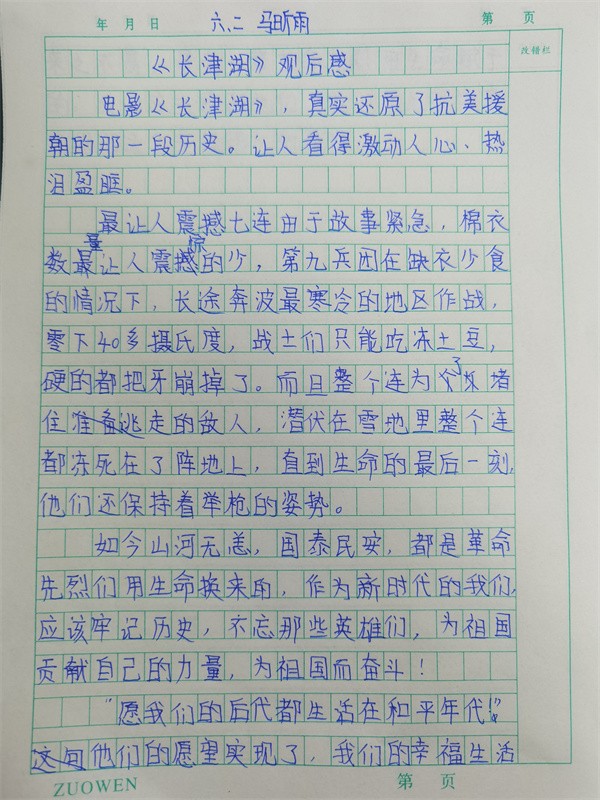 年 月 日 六、二 马昕雨 第 页
改错栏
《长津湖》观后感
电影《长津湖》,真实还原了抗美援
朝的那一段历史。让人看得激动人心、热
泪盈眶。
最让人震撼七连由于故事紧急,棉衣
数量最让人震撼的少,第九兵团在缺衣少食
的情况下,长途奔波最寒冷的地区作战,
零下40多摄氏度,战士们只能吃冻土豆,
硬的都把牙崩掉了。而且整个连为了堵
住准备逃走的敌人,潜伏在雪地里整个连
都冻死在了阵地上,直到生命的最后一刻,
他们还保持着举枪的姿势。
如今山河无恙,国泰民安,都是革命
先烈们用生命换来的,作为新时代的我们,
应该牢记历史,不忘那些英雄们,为祖国
贡献自己的力量,为祖国而奋斗!
"愿我们的后代都生活在和平年代!"
这句他们的愿望实现了,我们的幸福生活
ZUOWEN 第 页